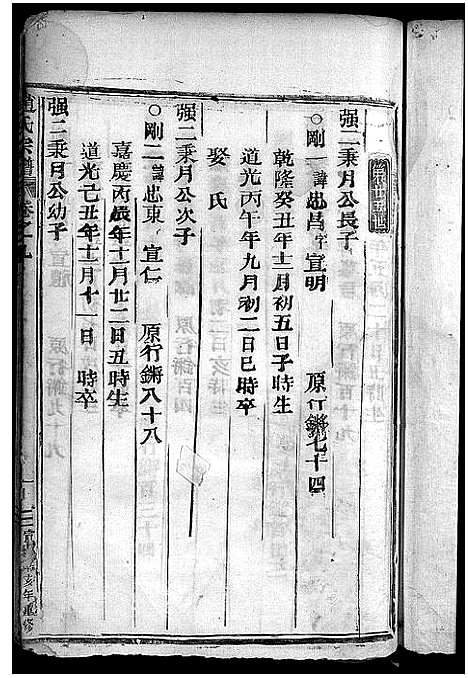 强二秉月公長子
○剛一諱忠昌字宣明 原行鏘七十四
乾隆癸丑年十二月初五日子時生
道光丙午年九月初二日巳時卒
娶 氏
强二秉月公次子
○剛二諱忠東 宣仁 原行鏘八十八
嘉慶丙辰年十月廿二日丑時生
道光己丑年十二月十一日 時卒
强二秉月公幼子
氏宗譜 卷之九
亥年重修